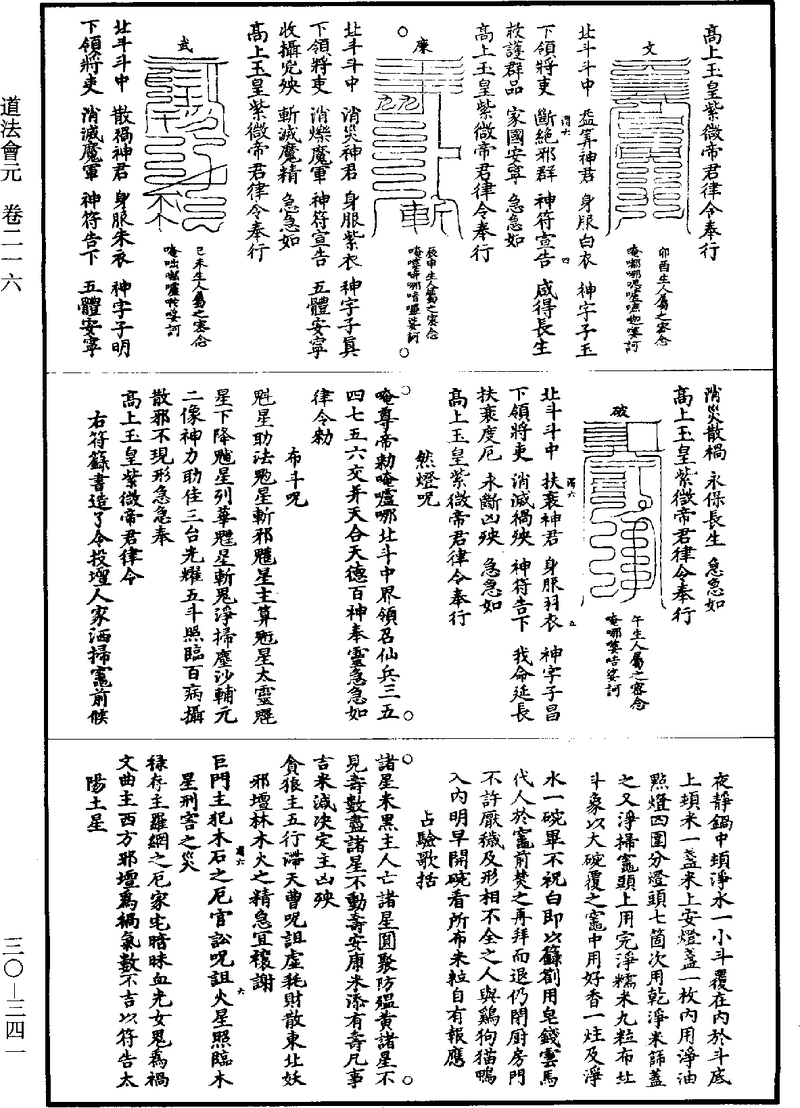 道法會元　卷二一六
三〇—三四一
高上玉皇紫微帝君律令奉行
文
卯酉生人屬之密念
北斗斗中　益筭神君　身服白衣　神字子玉
下領將吏　斷絕邪群　神符宣告　咸得長生
救護群品　家國安寧　急急如
高上玉皇紫微帝君律令奉行
廉
辰申生人屬之密念
北斗斗中　消災神君　身服紫衣　神字子真
下領將吏　消爍魔軍　神符宣告　五體安寧
收攝兇殃　斬滅魔精　急急如
高上玉皇紫微帝君律令奉行
武
巳未生人屬之密念
北斗斗中　散禍神君　身服朱衣　神字子明
下領將吏　消滅魔軍　神符告下　五體安寧
消災散禍　永保長生　急急如
高上玉皇紫微帝君律令奉行
破
午生人屬之密念
北斗斗中　扶衰神君　身服羽衣　神字子昌
下領將吏　消滅禍殃　神符告下　我命延長
扶衰度厄　永斷凶殃　急急如
高上玉皇紫微帝君律令奉行
然燈呪
唵尊帝勑唵嚧哪北斗中界領召仙兵三五
四七五六交并天合天德百神奉靈急急如
律令勑
布斗呪
魁星助法魓星斬邪魓星主算魓星太靈魓
星下降魓星列華魓星斬鬼淨掃塵沙輔元
二像神力助佳三台光耀五斗照臨百病攝
散邪不現形急急奉
高上玉皇紫微帝君律令
右符籙書造了令投壇人家洒掃竈前候
夜靜鍋中頃淨水一小斗覆在內於斗底
上頓米一盞米上安燈盞一枚內用淨油
點燈四圍分燈頭七箇次用乾淨米篩蓋
之又淨掃竈頭上用完淨糯米九粒布北
斗象以大碗覆之竈中用好香一炷及淨
水一碗畢不祝白即以籙劄用皂錢雲馬
代人於竈前焚之再拜而退仍閉厨房門
不許厭穢及形相不全之人與鷄狗猫鴨
入內明早開碗看所布米粒自有報應
占驗歌括
諸星米黑主人亡諸星圓聚防瘟黄諸星不
見壽數盡諸星不動壽安康米添有壽凡事
吉米減決定主凶殃
貪狼主五行滯天曹呪詛虛耗財散東北妖
邪壇林木火之精急宜禳謝
巨門主犯木石之厄官訟呪詛火星照臨木
星刑害之災
祿存主羅網之厄家宅暗昧血光女鬼爲禍
文曲主西方邪壇爲禍氣數不吉以符告太
陽土星